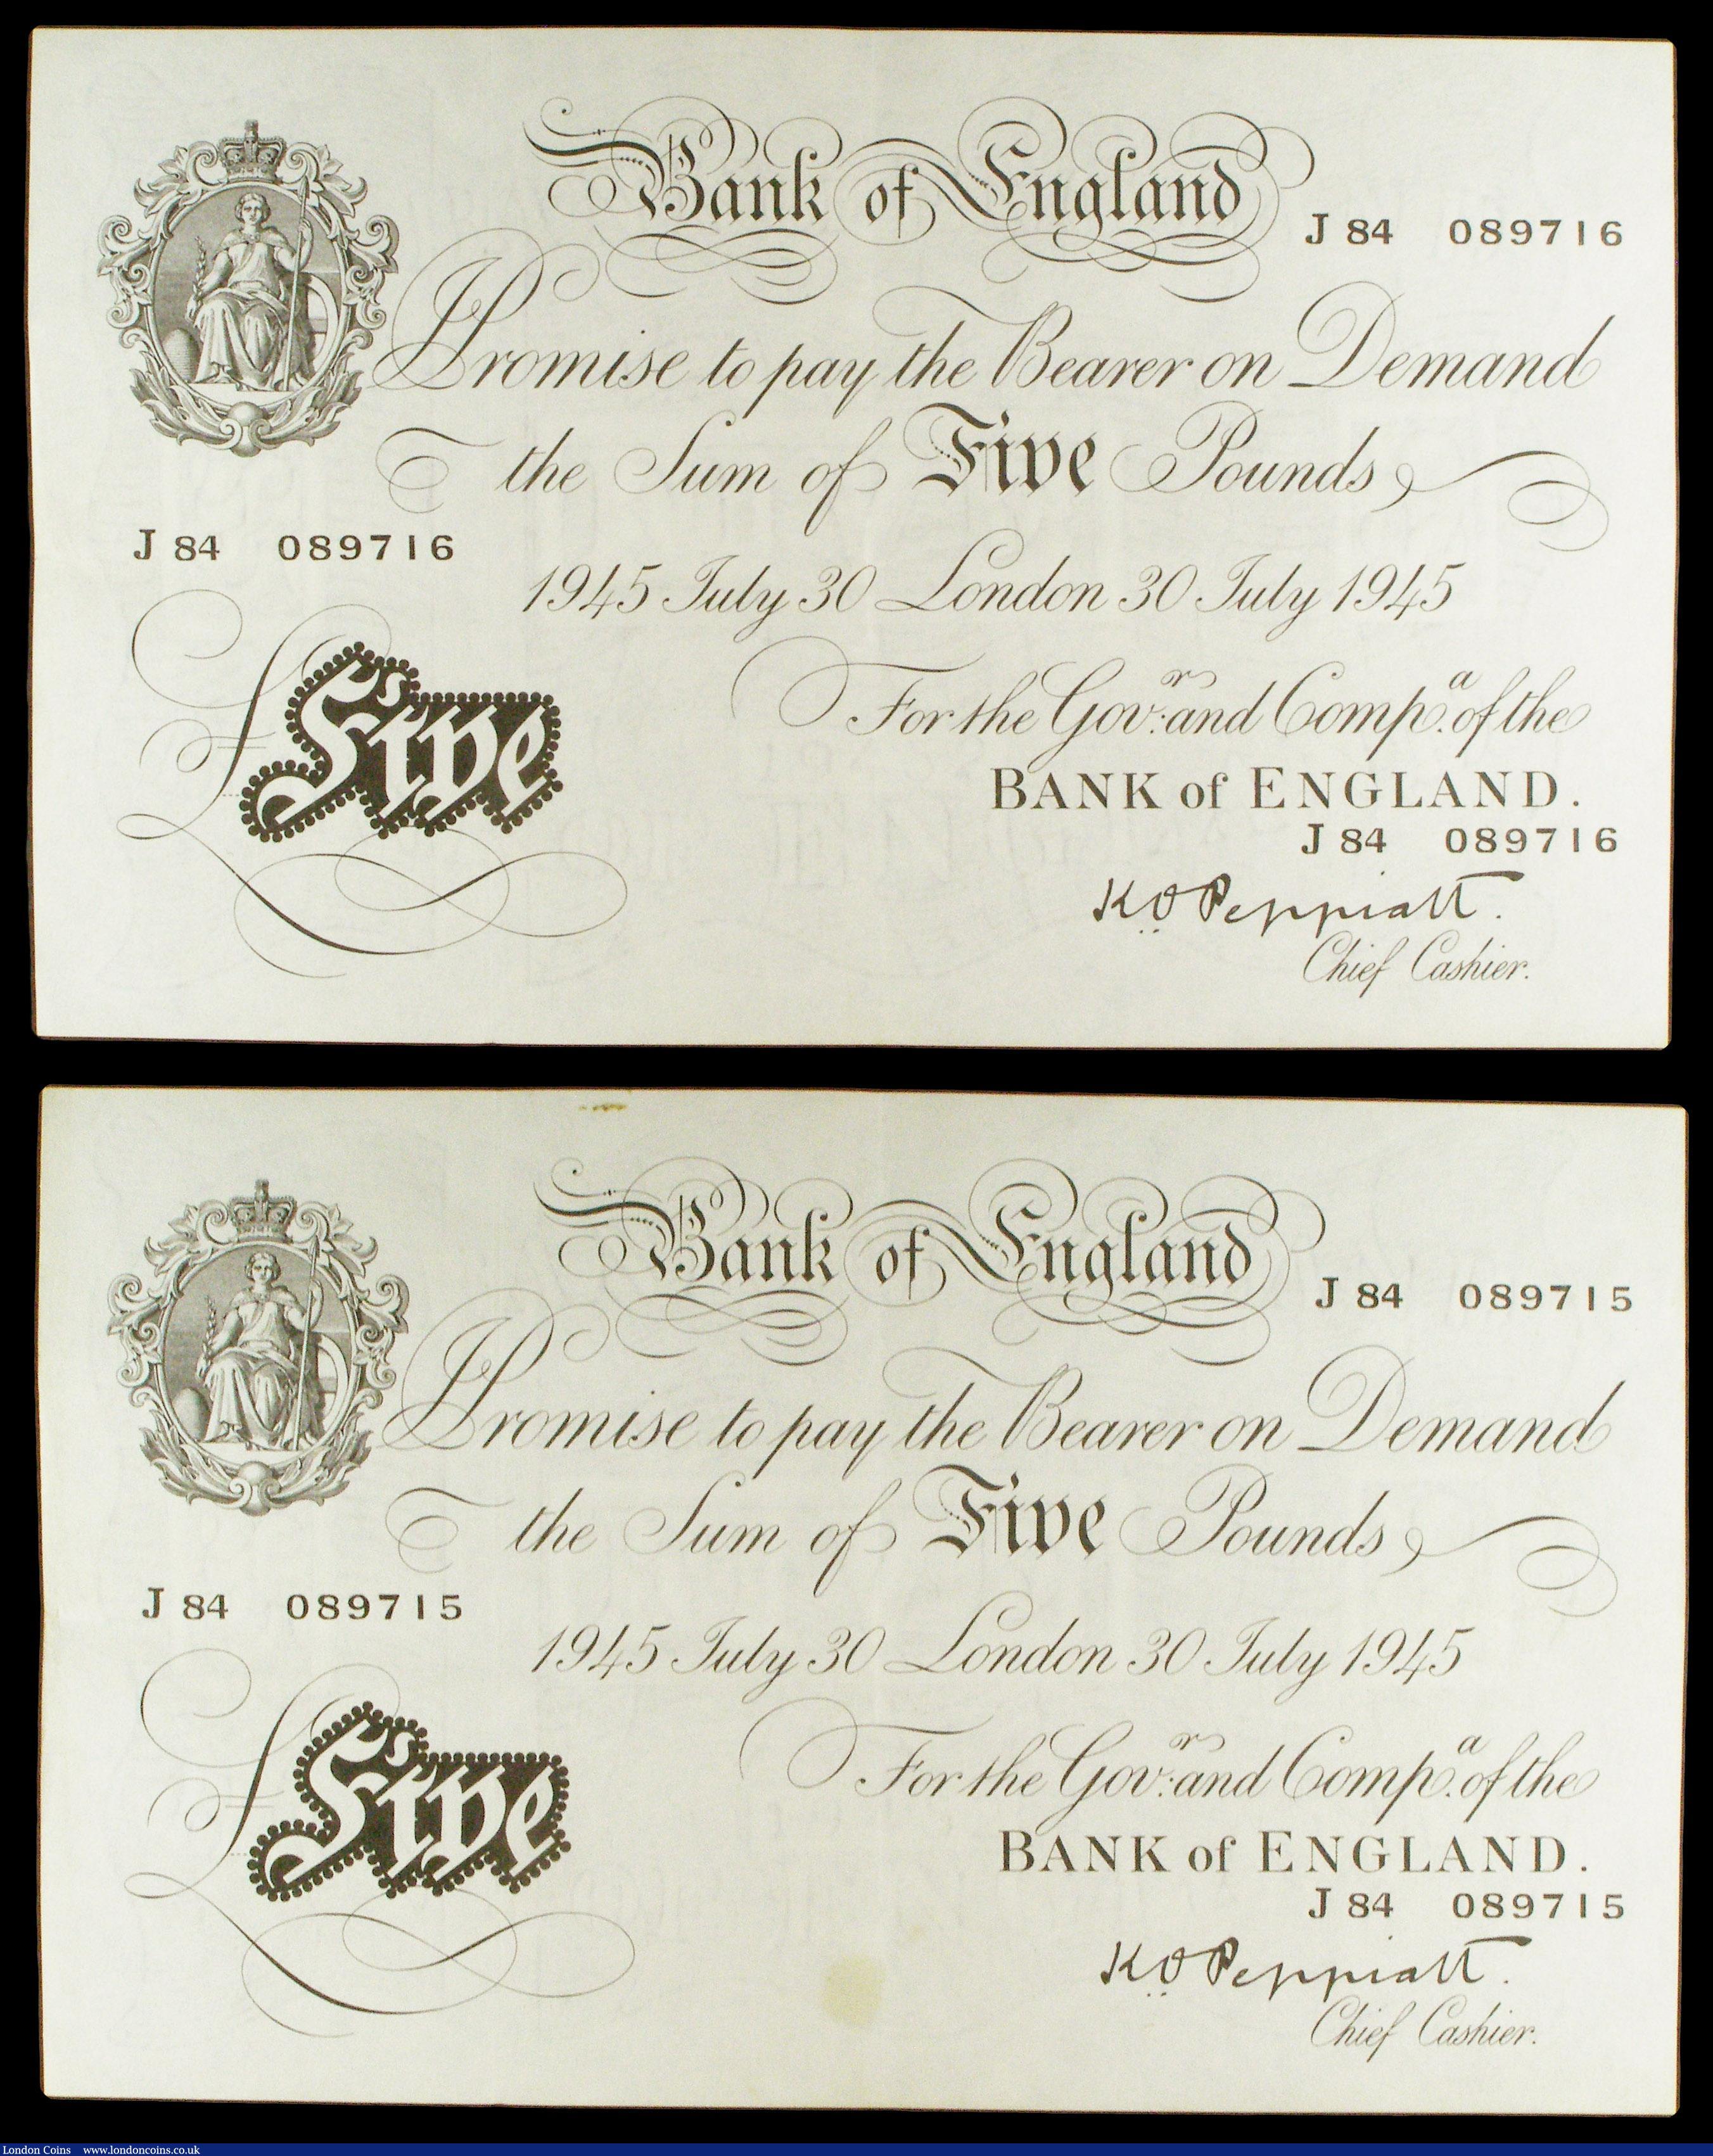 Bank of England
J 84 089716
Promise to pay the Bearer on Demand
the Sum of Five Pounds
J 84 089716
1945 July 30 London 30 July 1945
£Five
For the Gov.r and Comp.a of the
BANK of ENGLAND.
J 84 089716
K.O. Peppiatt.
Chief Cashier.
Bank of England
J 84 089715
Promise to pay the Bearer on Demand
the Sum of Five Pounds
J 84 089715
1945 July 30 London 30 July 1945
£Five
For the Gov.r and Comp.a of the
BANK of ENGLAND.
J 84 089715
K.O. Peppiatt.
Chief Cashier.
London Coins www.londoncoins.co.uk